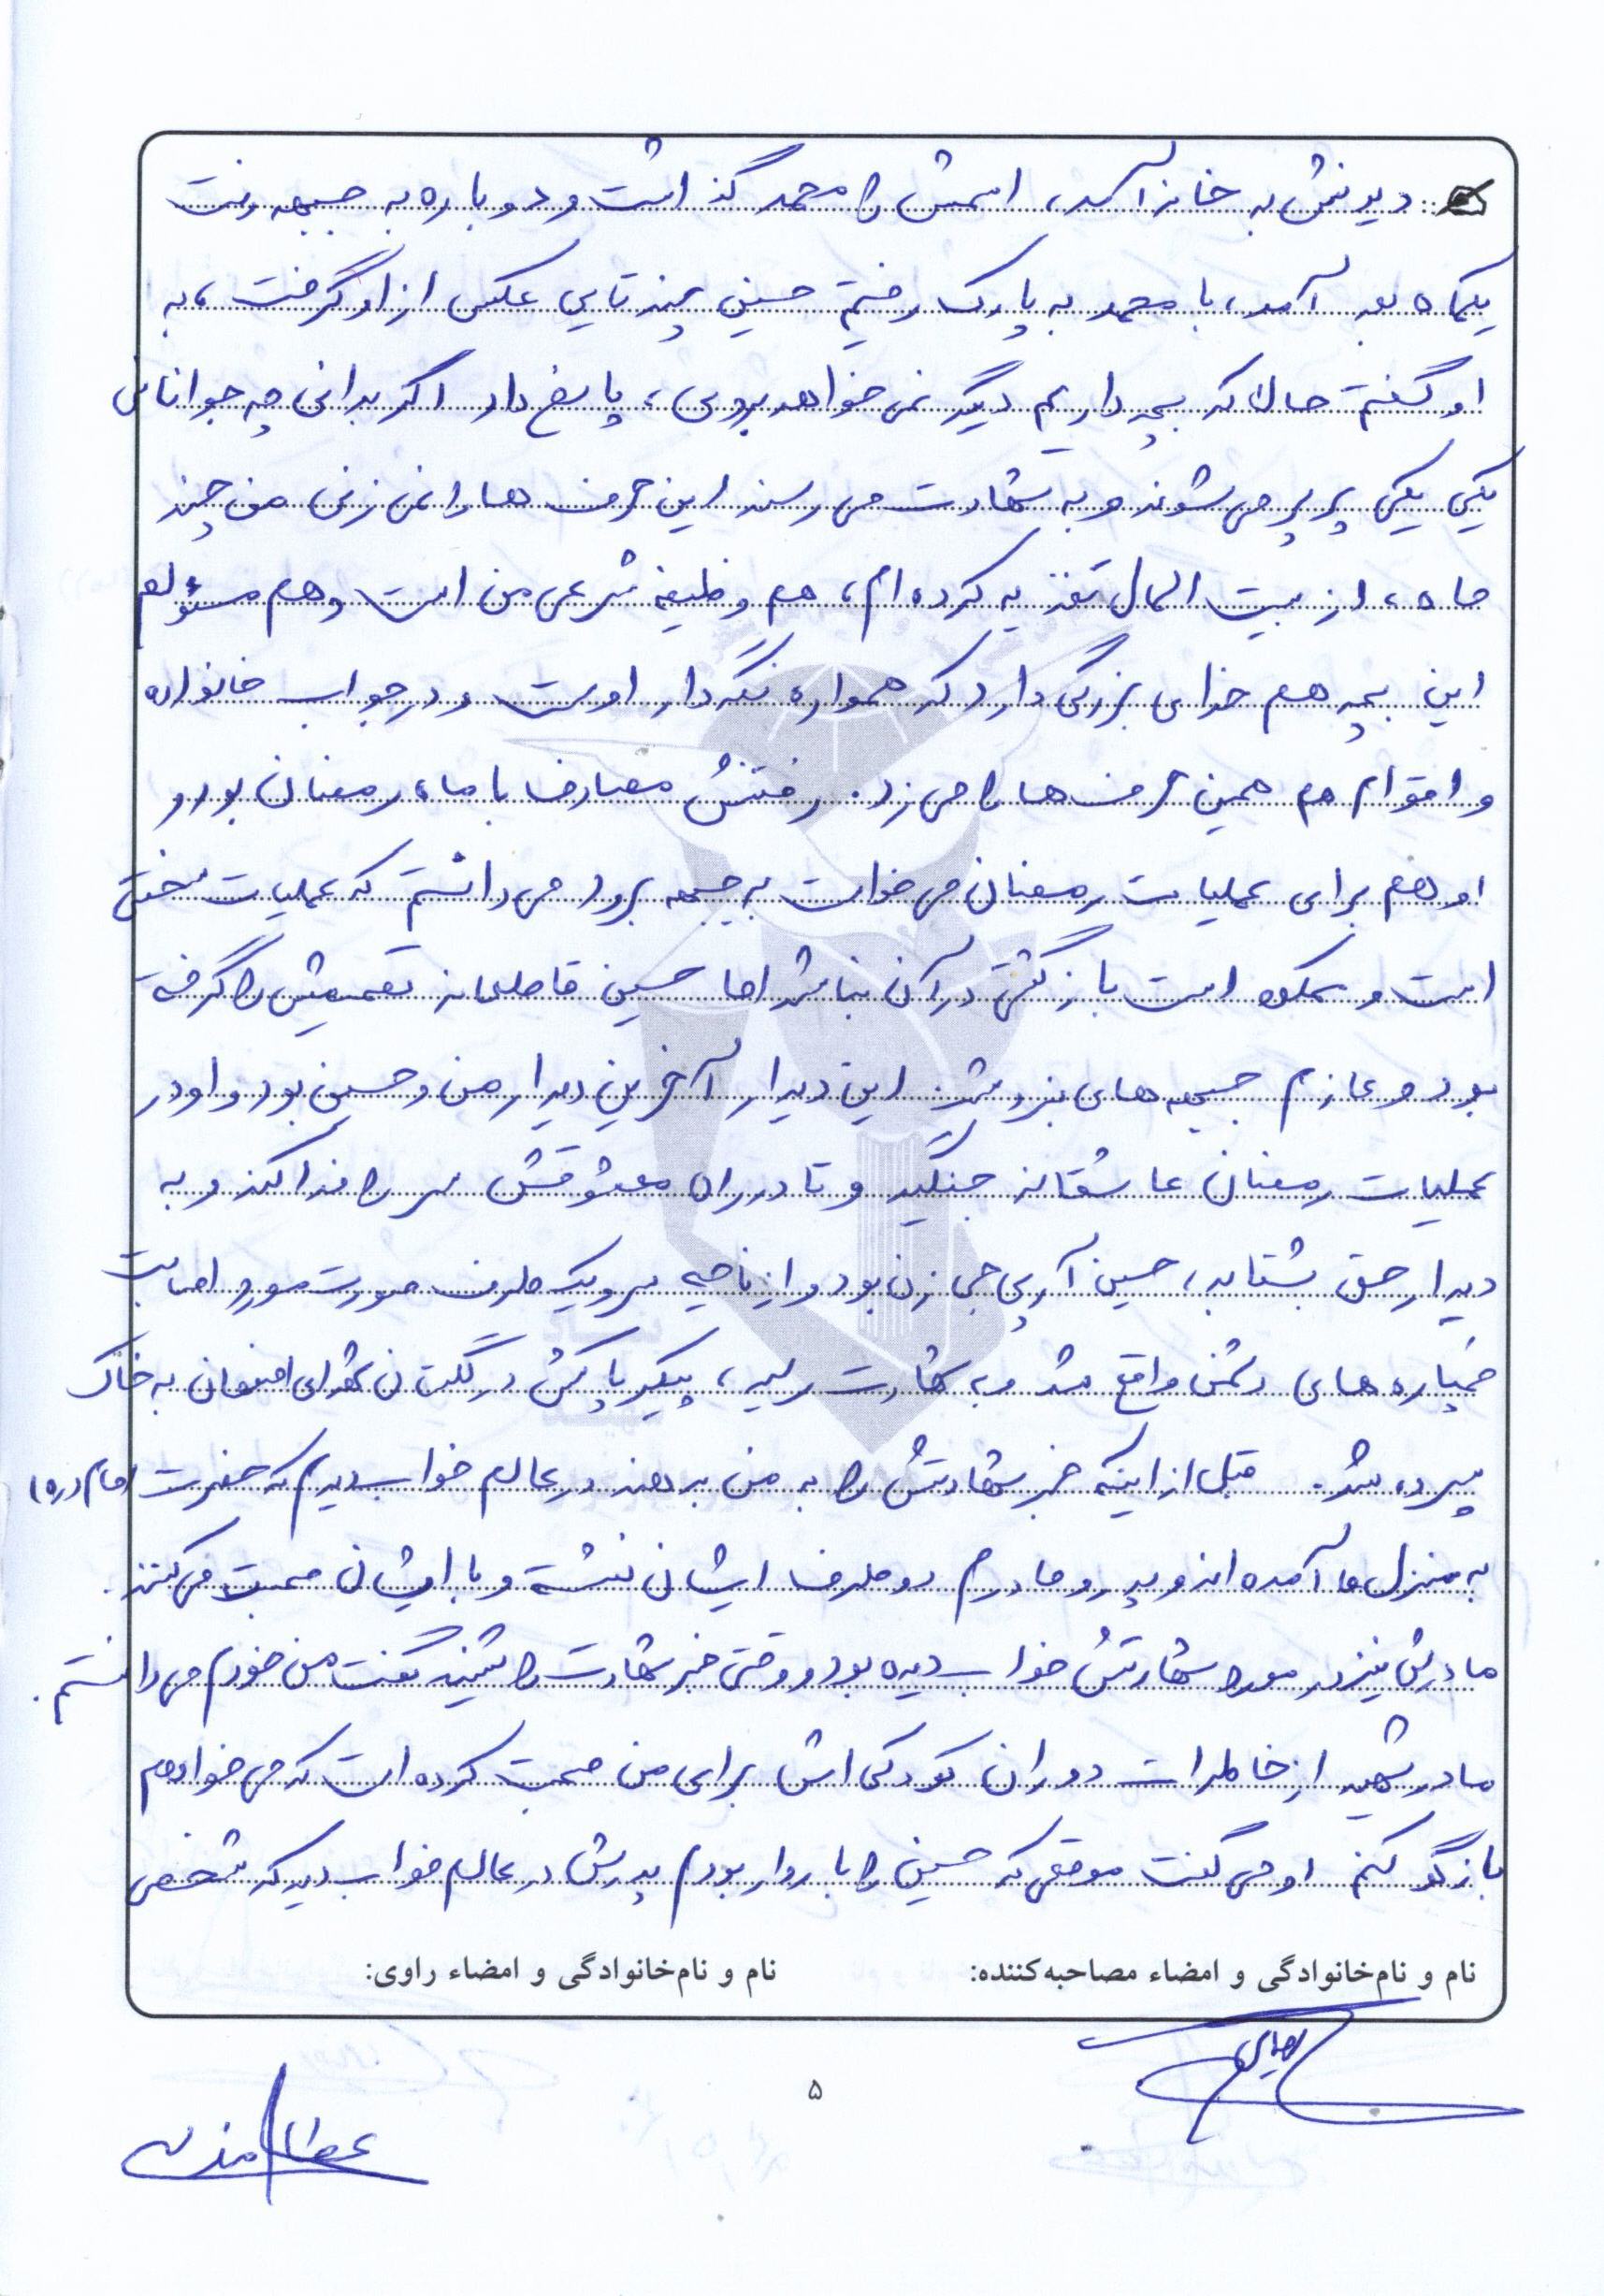 دیدنش به خانه آمد، اسمش را محمد گذاشت و دوباره به جبهه رفت
یکماه بعد آمد، با محمد به پارک رفتیم حسین چندتایی عکس از او گرفت، به
او گفتم حالا که بچه داریم دیگر نمی‌خواهد بروی، پاسخ داد اگر بدانی چه جوانانی
یکی یکی پرپر می‌شوند و به شهادت می‌رسند این حرف‌ها را نمی‌زنی من چند
ماه، از بیت المال تغذیه کرده‌ام، هم وظیفه شرعی من است و هم مسئولم
این بچه هم خدای بزرگی دارد که همواره نگهدار اوست و در جواب خانواده
و اقوام هم همین حرف‌ها را می‌زد. رفتنش مصادف با ماه رمضان بود و
او هم برای عملیات رمضان می‌خواست به جبهه برود می‌دانستم که عملیات سختی
است و ممکن است بازگشتی در آن نباشد اما حسین قاطعانه تصمیمش را گرفته
بود و عازم جبهه‌های نبرد شد. این دیدار آخرین دیدار من و حسین بود و او در
عملیات رمضان عاشقانه جنگید و تا در راه معشوقش سر را فدا کند و به
دیدار حق بشتابد، حسین آرپی جی زن بود و از ناحیه سر و یک طرف صورت مورد اصابت
خمپاره‌های دشمن واقع شد و به شهادت رسید، پیکر پاکش در گلستان شهدای اصفهان به خاک
سپرده شد. قبل از اینکه خبر شهادتش را به من بدهند در عالم خواب دیدم که حضرت امام (ره)
به منزل ما آمده‌اند و پدر و مادرم دو طرف ایشان نشسته و با ایشان صحبت می‌کنند.
مادرش نیز در مورد شهادتش خواب دیده بود و وقتی خبر شهادت را شنید گفت من خودم می‌دانستم.
مادر شهید از خاطرات دوران کودکی اش برای من صحبت کرده است که می‌خواهم
بازگو کنم او می‌گفت موقعی که حسین را باردار بودم پدرش در عالم خواب دید که شخصی
نام و نام‌خانوادگی و امضاء مصاحبه‌کننده:
نام و نام‌خانوادگی و امضاء راوی:
۵